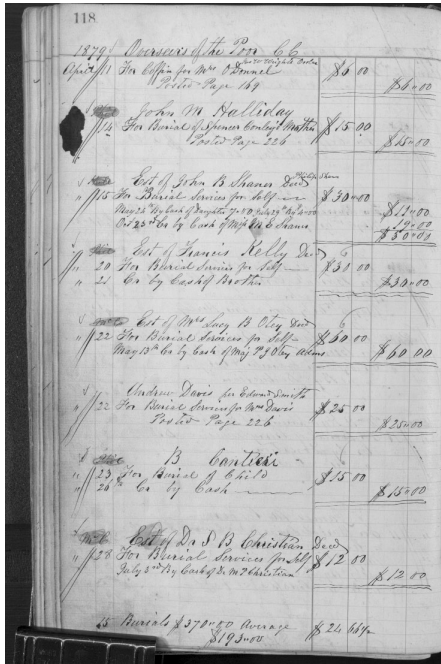 118
1879 Overseers of the Poor C C
April 11 For Coffin for Mrs O'Donnel Per W Wrights Order $6 00
Posted Page 169 $6 00
John M Halliday
" 14 For Burial of Spencer Conley's Mother $15 00
Posted Page 226 $15 00
Est of John B Shaner Decd
" 15 For Burial Services for Self $30 00
May 24th By Cash of $11 00
Oct 23rd Cr by Cash of E Shaner 19 00
$30 00
Est of Francis Kelly Decd
" 20 For Burial Services for Self $30 00
" 21 Cr by Cash of Brother $30 00
Est of Mrs Lucy B Otey Decd
" 22 For Burial Services for Self $60 00
May 13th Cr by Cash of Maj P J Otey Admr $60 00
Andrew Davis for Edward Smith
" 22 For Burial Services for Mrs Davis $25 00
Posted Page 226 $25 00
B Cantieri
" 23 For Burial of Child $15 00
" 26th Cr by Cash $15 00
Est of Dr S B Christian Decd
" 28 For Burial Services for Self $12 00
July 2nd By Cash of Dr M P Christian $12 00
15 Burials $370 00 Average $24 66 2/3
$193 00